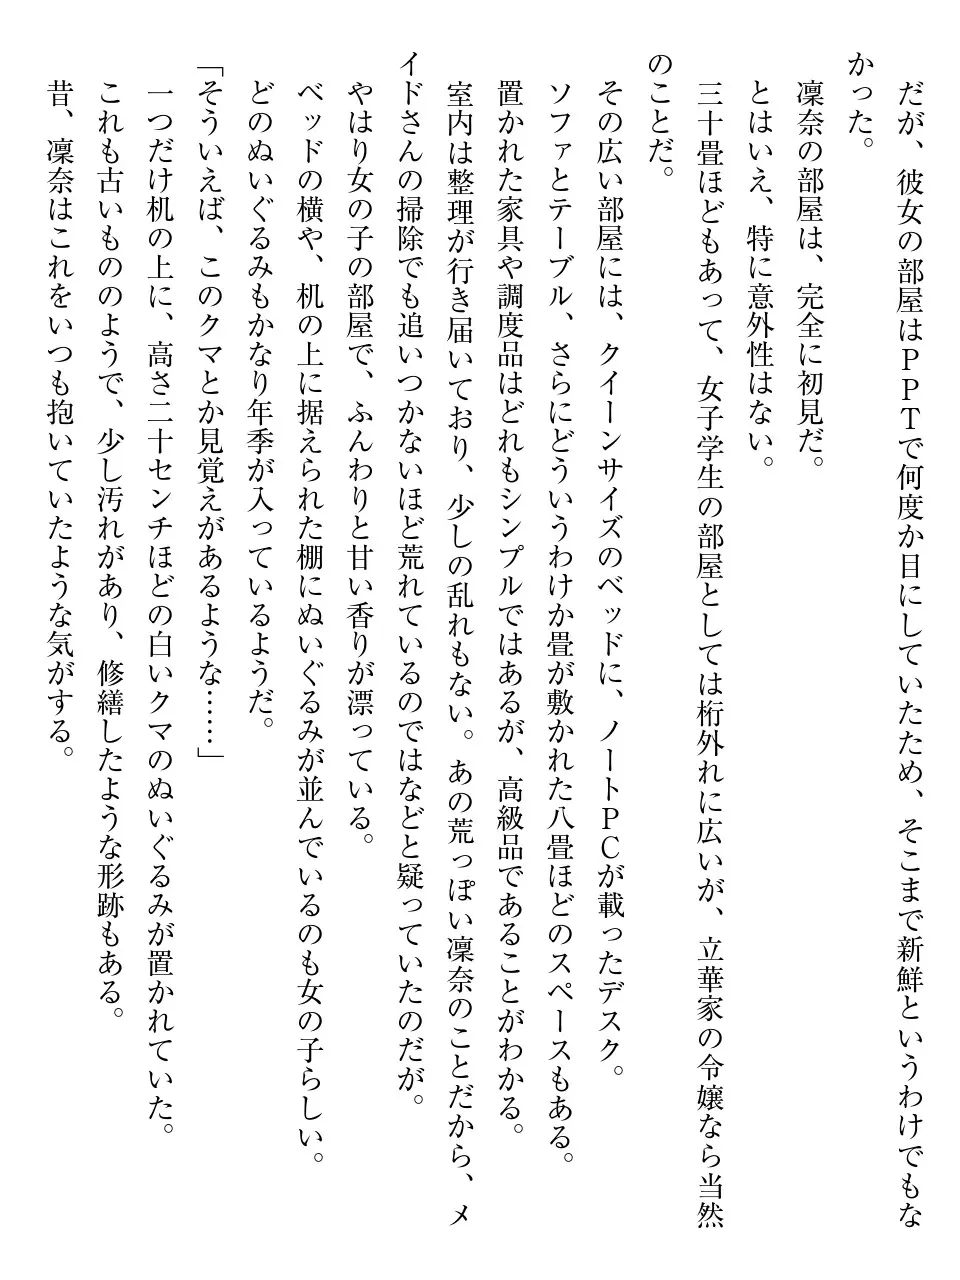 だが、彼女の部屋はＰＰＴで何度か目にしていたため、そこまで新鮮というわけでもな
かった。
凜奈の部屋は、完全に初見だ。
とはいえ、特に意外性はない。
三十畳ほどもあって、女子学生の部屋としては桁外れに広いが、立華家の令嬢なら当然
のことだ。
その広い部屋には、クイーンサイズのベッドに、ノートＰＣが載ったデスク。
ソファとテーブル、さらにどういうわけか畳が敷かれた八畳ほどのスペースもある。
置かれた家具や調度品はどれもシンプルではあるが、高級品であることがわかる。
室内は整理が行き届いており、少しの乱れもない。あの荒っぽい凜奈のことだから、メ
イドさんの掃除でも追いつかないほど荒れているのではなどと疑っていたのだが。
やはり女の子の部屋で、ふんわりと甘い香りが漂っている。
ベッドの横や、机の上に据えられた棚にぬいぐるみが並んでいるのも女の子らしい。
どのぬいぐるみもかなり年季が入っているようだ。
「そういえば、このクマとか見覚えがあるような……」
一つだけ机の上に、高さ二十センチほどの白いクマのぬいぐるみが置かれていた。
これも古いもののようで、少し汚れがあり、修繕したような形跡もある。
昔、凜奈はこれをいつも抱いていたような気がする。